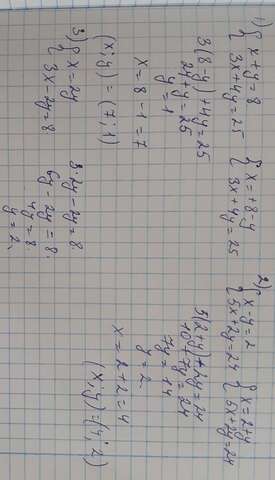 1) { x + y = 8
3x + 4y = 25
{ x = +8 - y
3x + 4y = 25
3(8-y) + 4y = 25
24 + y = 25
y = 1
x = 8 - 1 = 7
(x; y) = (7; 1)
2) { x - y = 2
5x + 2y = 24
{ x = 2 + y
5x + 2y = 24
5(2+y) + 2y = 24
10 + 7y = 24
7y = 14
y = 2
x = 2 + 2 = 4
(x; y) = (4; 2)
3) { x = 2y
3x - 2y = 8
3·2y - 2y = 8
6y - 2y = 8.
4y = 8
y = 2.